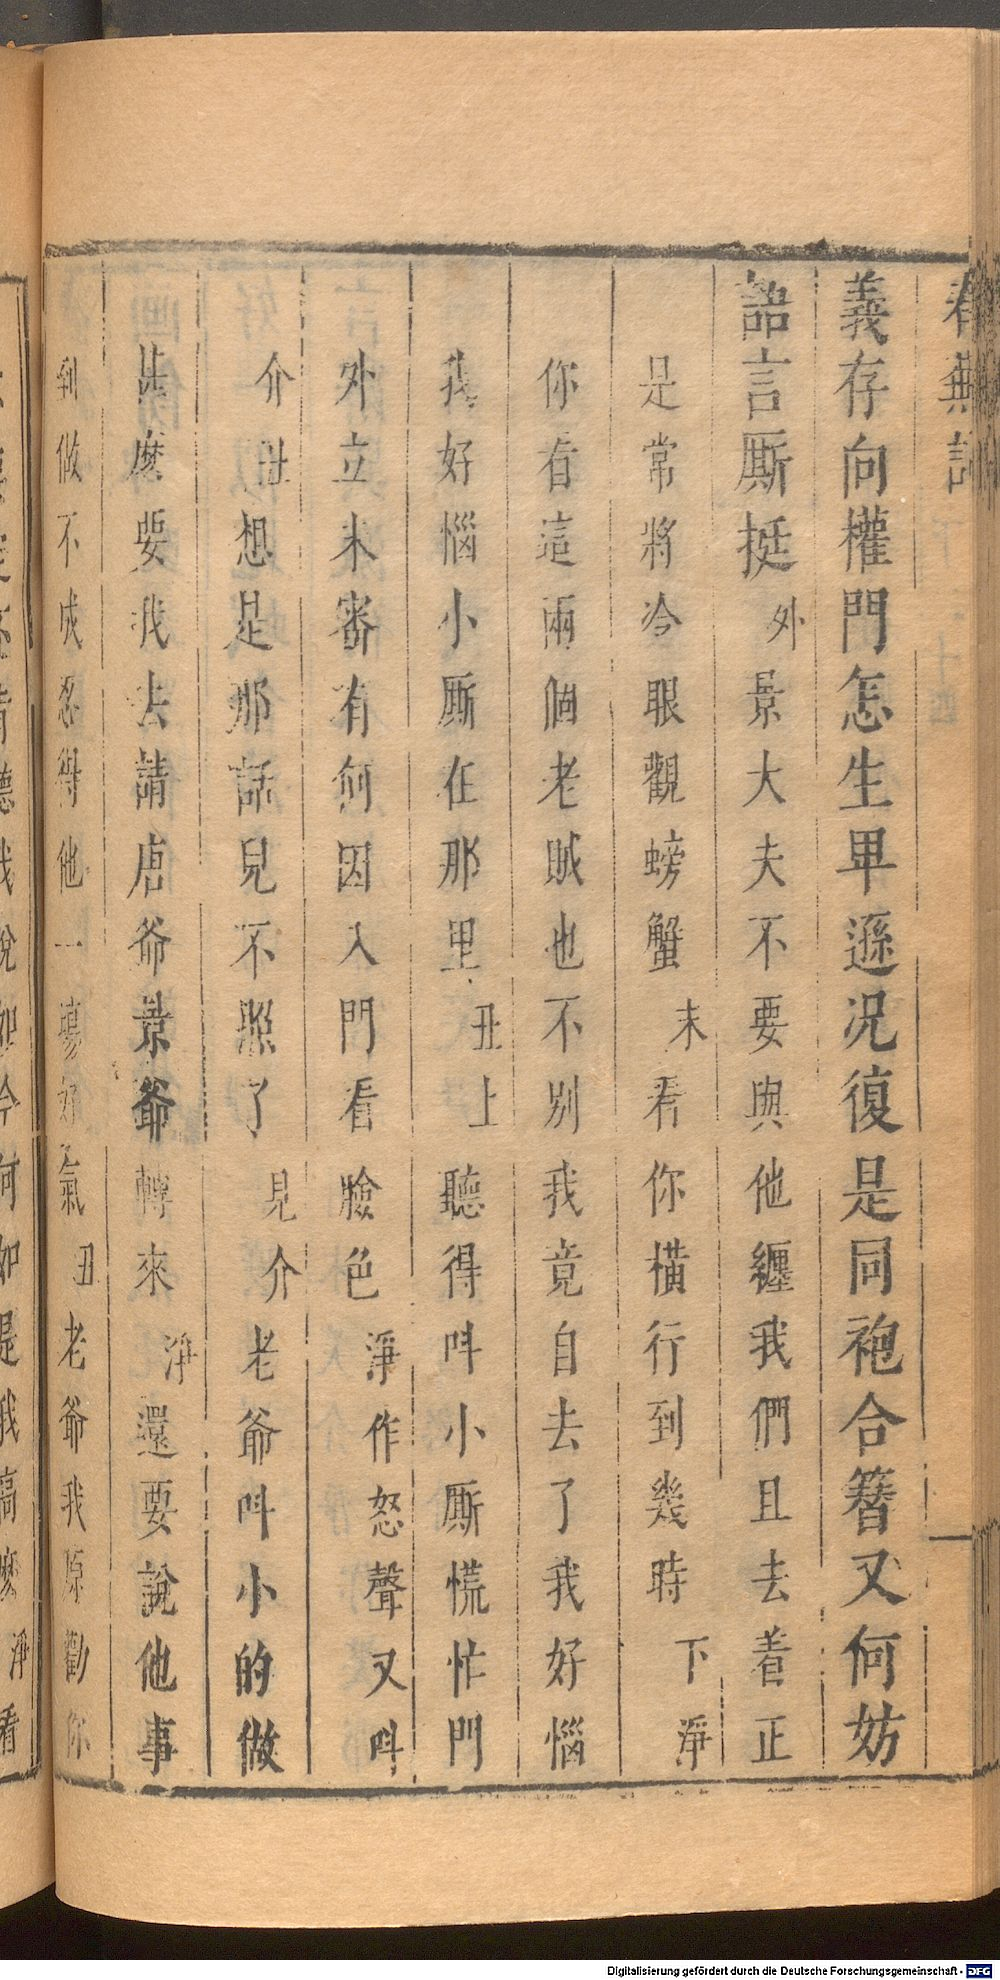 春蕪記
義存向權門怎生卑遜况復是同袍合簪又何妨
詔言厮挺外景大夫不要與他纒我們且去着正
是常將冷眼觀螃蟹末看你橫行到幾時下淨
你看這兩個老賊也不別我竟自去了我好惱
我好惱小厮在那里丑上聽得呌小厮慌忙門
外立未審有何因入門看臉色淨作怒聲又呌
介丑想是那話兒不照了見介老爺呌小的做
甚麽要我去請唐爺景爺轉來淨還要說他事
到做不成忍得他一塲好氣丑老爺我原勸你
Digitalisierung gefördert durch die Deutsche Forschungsgemeinschaft - DFG